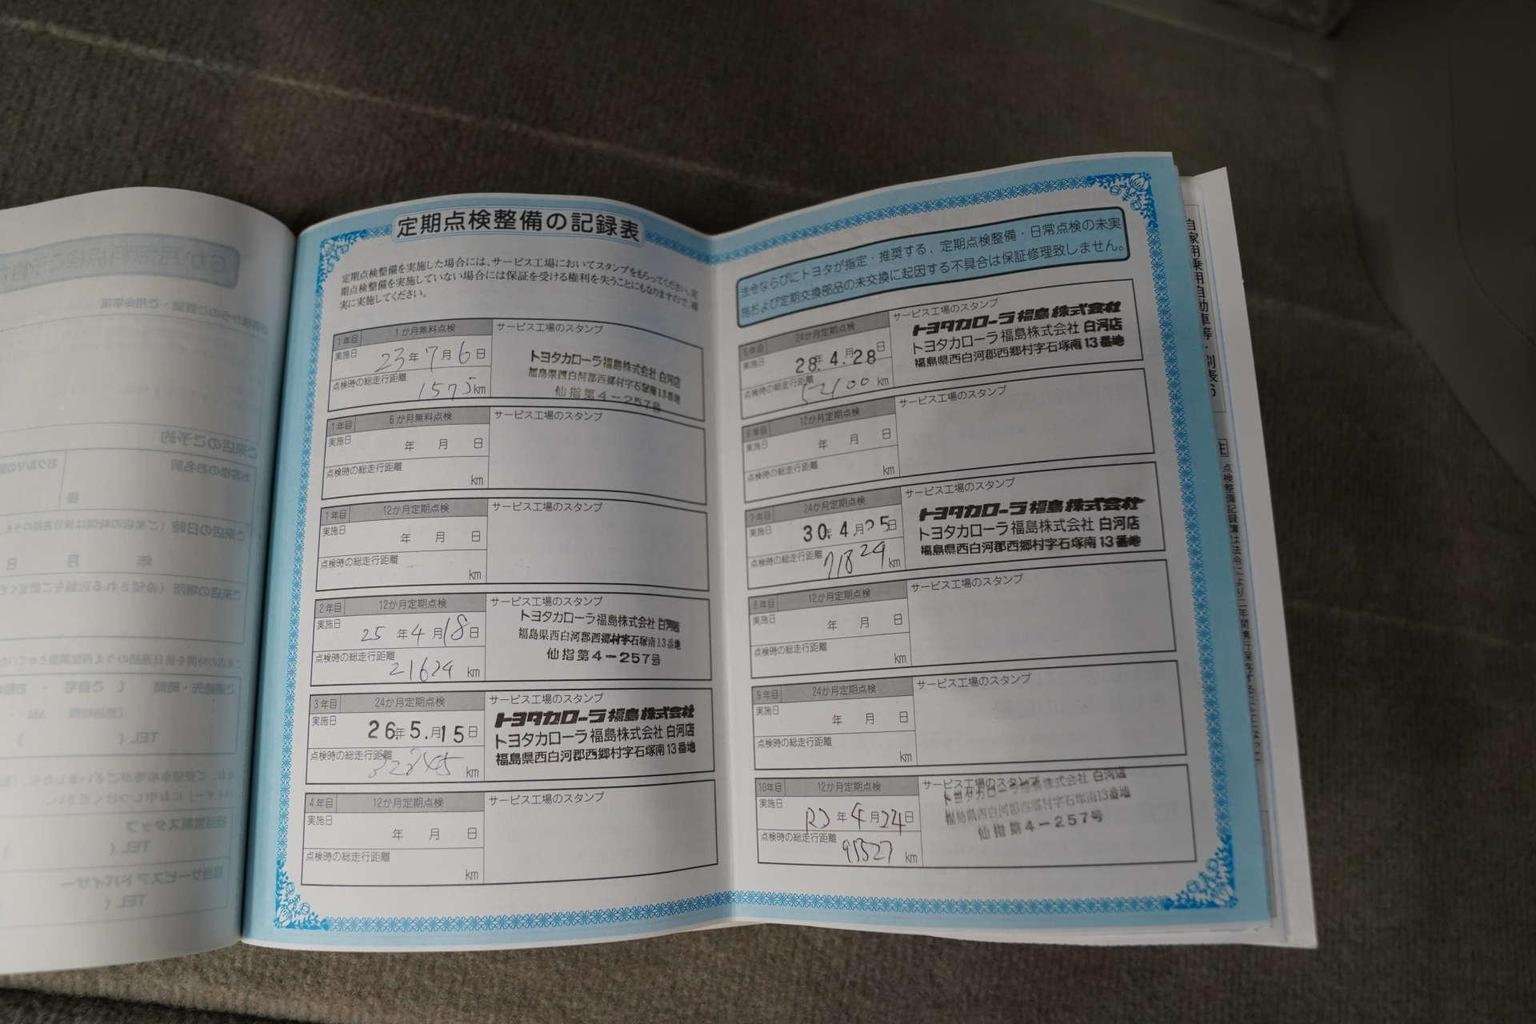 定期点検整備の記録表
定期点検整備を実施した場合には、サービス工場においてスタンプをもらってください。定
期点検整備を実施していない場合には保証を受ける権利を失うことにもなりますので、確
実に実施してください。
1年目 1か月無料点検 サービス工場のスタンプ
実施日 23年7月6日
点検時の総走行距離 1575km
トヨタカローラ福島株式会社 白河店
福島県西白河郡西郷村字石塚南13番地
仙指第4-257号
1年目 6か月無料点検 サービス工場のスタンプ
実施日 年 月 日
点検時の総走行距離 km
1年目 12か月定期点検 サービス工場のスタンプ
実施日 年 月 日
点検時の総走行距離 km
2年目 12か月定期点検 サービス工場のスタンプ
実施日 25年4月18日
点検時の総走行距離 21624km
トヨタカローラ福島株式会社 白河店
福島県西白河郡西郷村字石塚南13番地
仙指第4-257号
3年目 24か月定期点検 サービス工場のスタンプ
実施日 26年5.月15日
点検時の総走行距離 km
トヨタカローラ福島株式会社
トヨタカローラ福島株式会社 白河店
福島県西白河郡西郷村字石塚南13番地
4年目 12か月定期点検 サービス工場のスタンプ
実施日 年 月 日
点検時の総走行距離 km
法令ならびにトヨタが指定・推奨する、定期点検整備・日常点検の未実
施および定期交換部品の未交換に起因する不具合は保証修理致しません。
5年目 24か月定期点検 サービス工場のスタンプ
実施日 28年4.月28日
点検時の総走行距離 km
トヨタカローラ福島株式会社
トヨタカローラ福島株式会社 白河店
福島県西白河郡西郷村字石塚南13番地
6年目 12か月定期点検 サービス工場のスタンプ
実施日 年 月 日
点検時の総走行距離 km
7年目 24か月定期点検 サービス工場のスタンプ
実施日 30年4月25日
点検時の総走行距離 71829
トヨタカローラ福島株式会社
トヨタカローラ福島株式会社 白河店
福島県西白河郡西郷村字石塚南13番地
8年目 12か月定期点検 サービス工場のスタンプ
実施日 年 月 日
点検時の総走行距離 km
9年目 24か月定期点検 サービス工場のスタンプ
実施日 年 月 日
点検時の総走行距離 km
10年目 12か月定期点検 サービス工場のスタンプ
実施日 年4月24日
点検時の総走行距離 km
トヨタカローラ福島株式会社 白河店
福島県西白河郡西郷村字石塚南13番地
仙指第4-257号